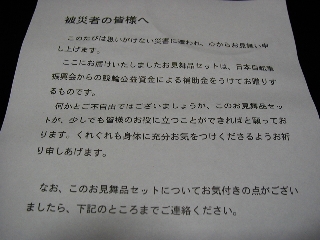 被災者の皆様へ
このたびは思いがけない災害に遭われ、心からお見舞い申
し上げます。
ここにお届けいたしましたお見舞品セットは、日本自転車
振興会からの競輪公益資金による補助金をうけてお贈りす
るものです。
何かとご不自由ではございましょうが、このお見舞品セッ
トが、少しでも皆様のお役に立つことができればと願ってお
ります。くれぐれも身体に充分お気をつけくださるようお祈
り申しあげます。
なお、このお見舞品セットについてお気付きの点がござい
ましたら、下記のところまでご連絡ください。